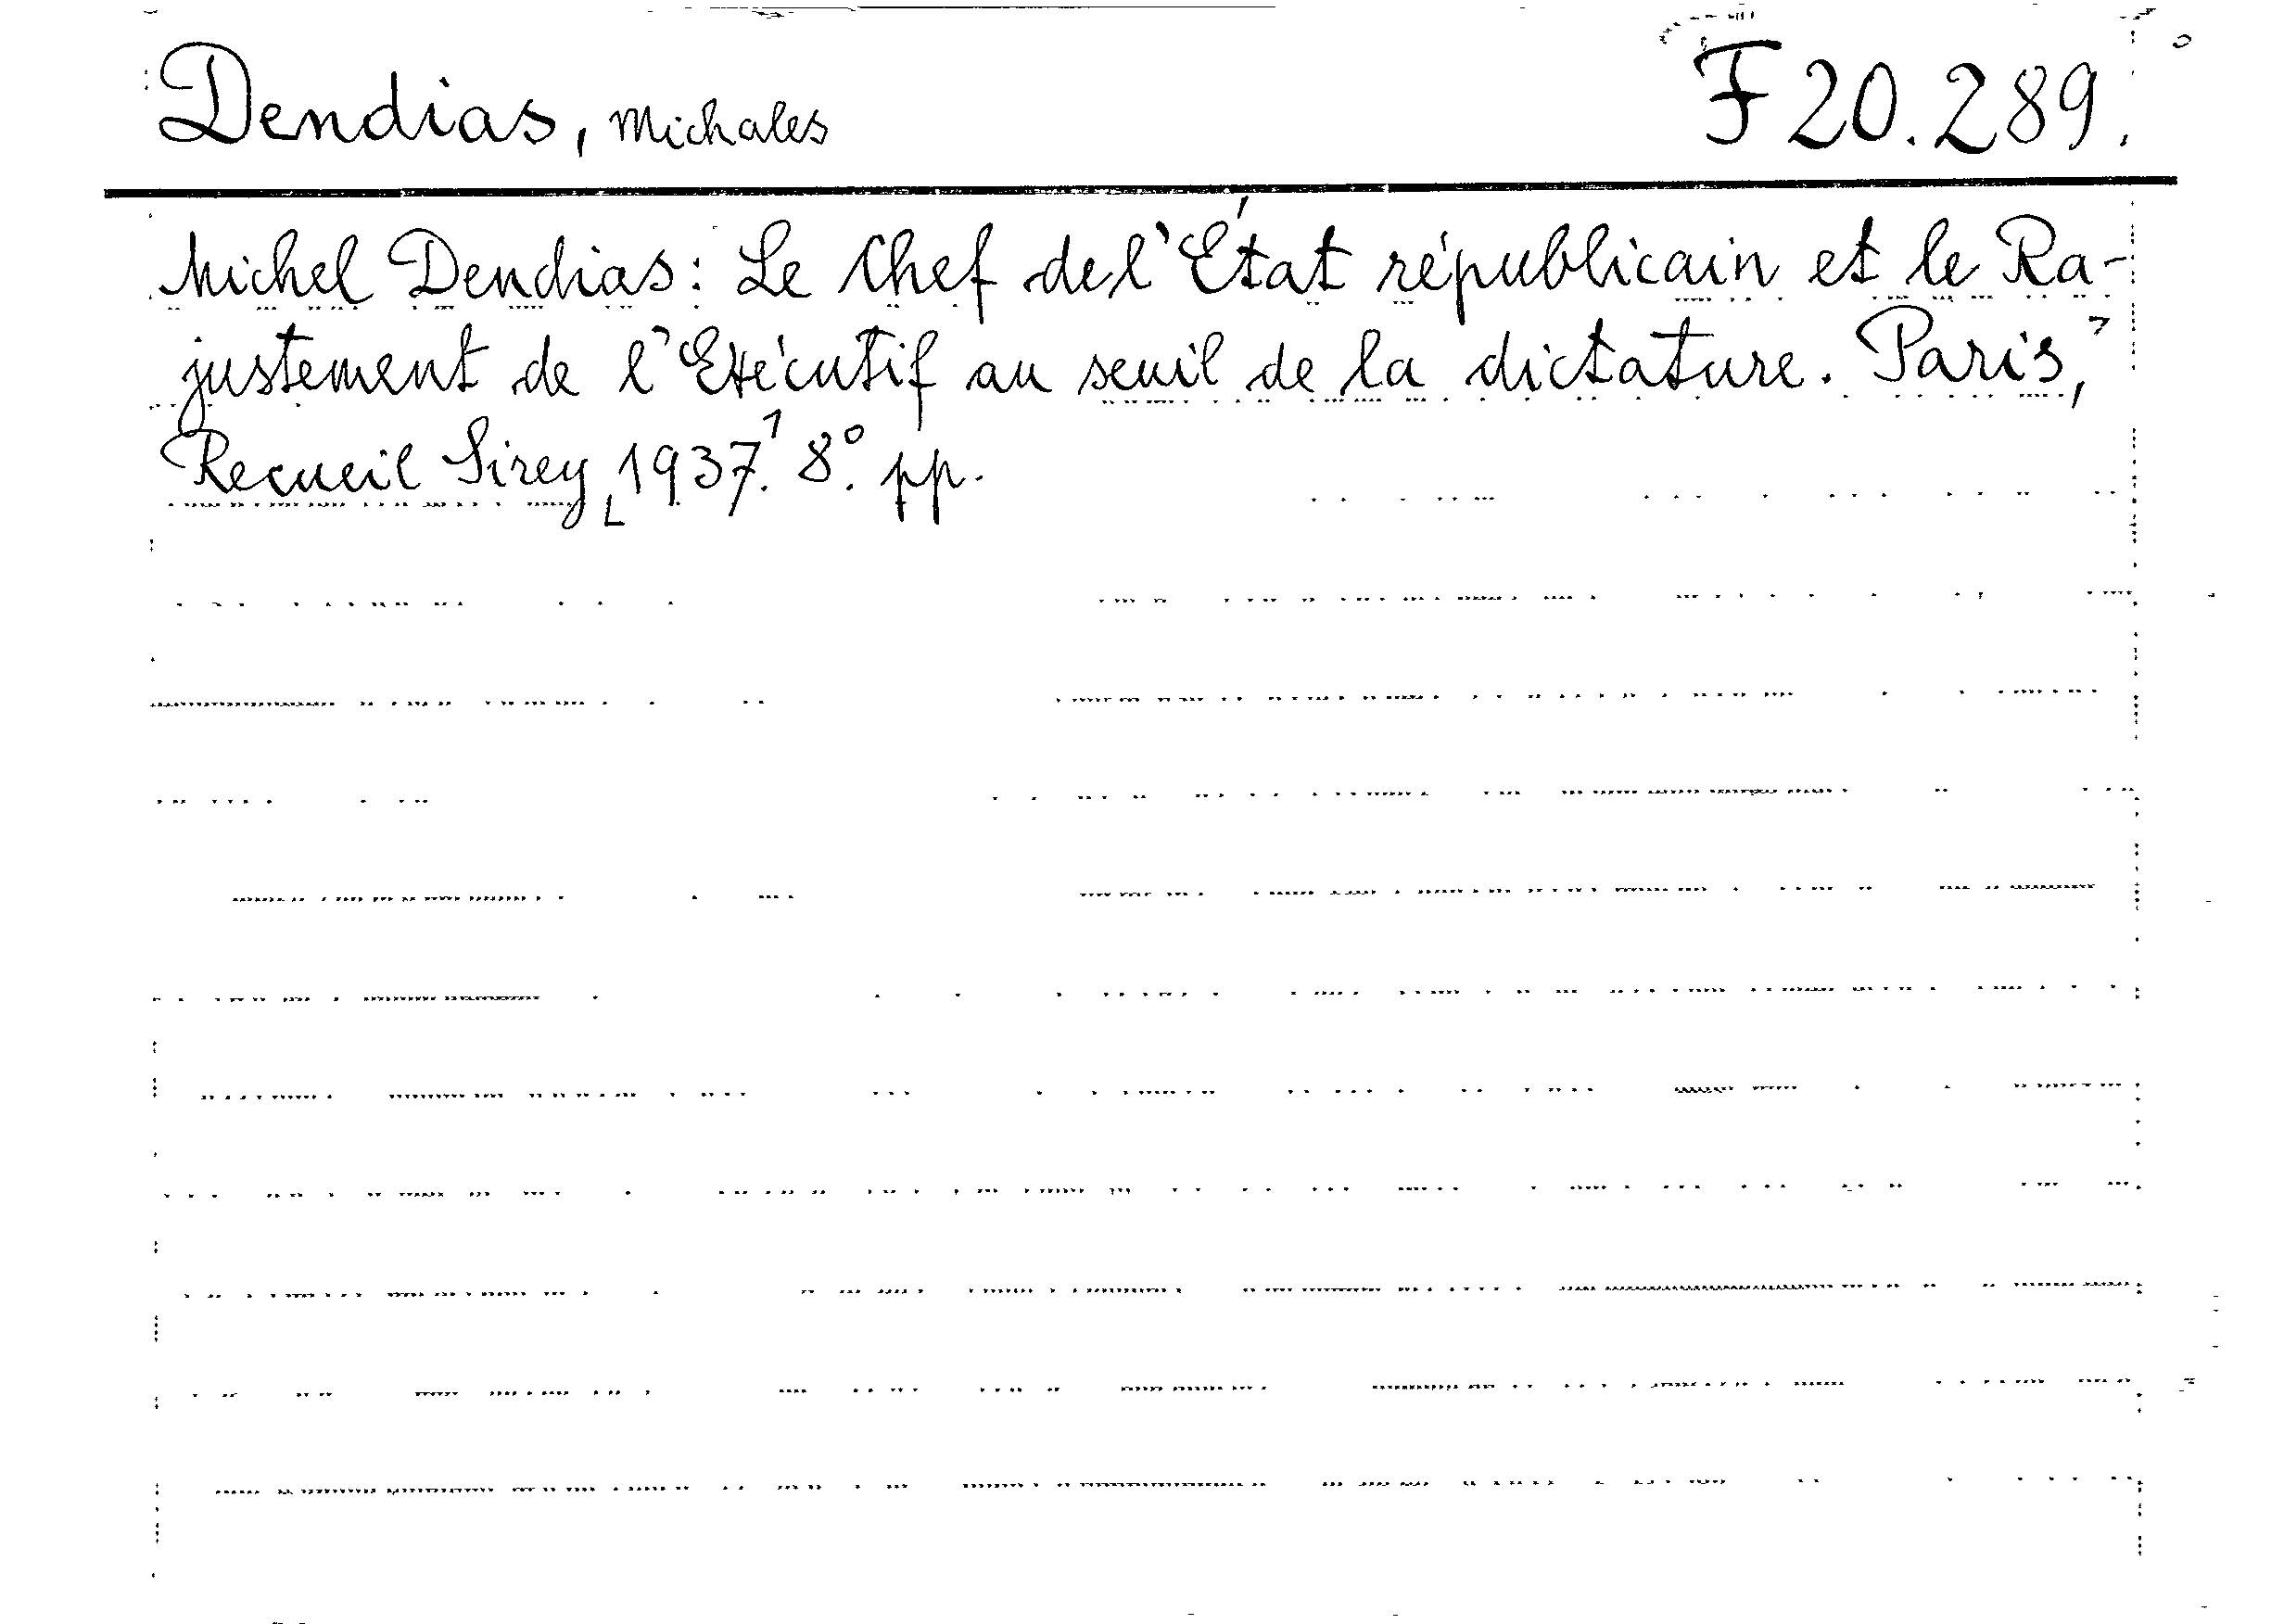 Dendias, Michales F 20.289.
Michel Dendias: Le Chef de l'État républicain et le Ra-
justement de l'Exécutif au seuil de la dictature. Paris,
Recueil Sirey 1937. 8°. pp.